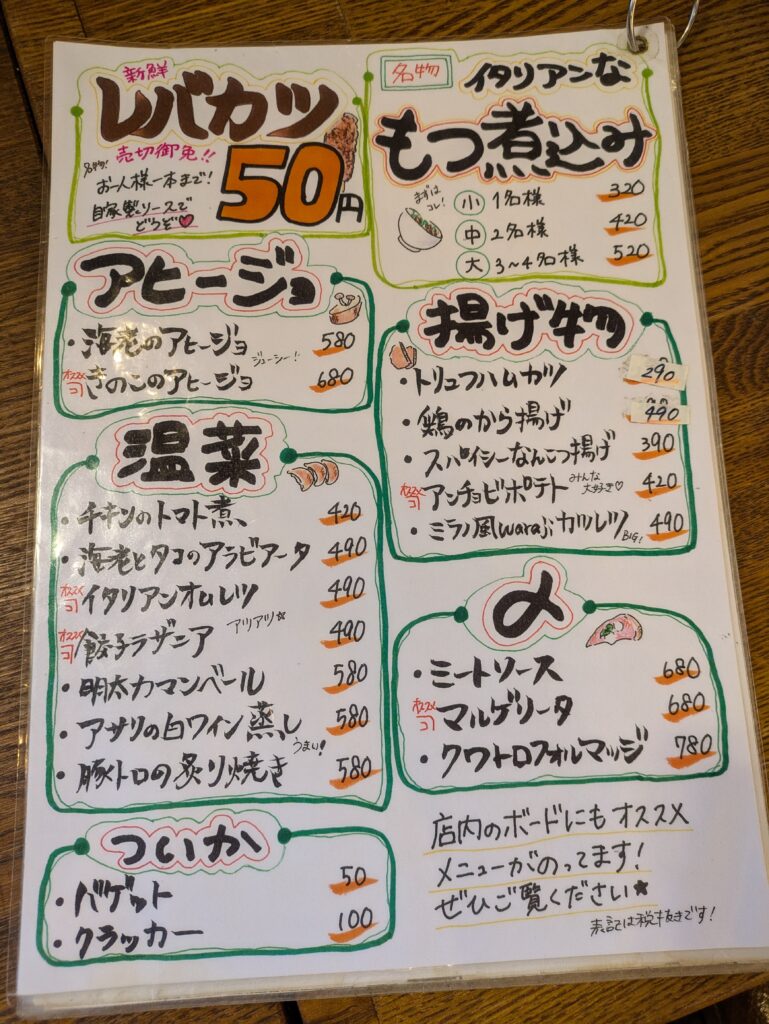 新鮮
レバカツ
売切御免!!
お一人様一本まで!
自家製ソースで
どうぞ
50円
名物
イタリアンな
もつ煮込み
まずは
コレ!
小 1名様 320
中 2名様 420
大 3〜4名様 520
アヒージョ
・海老のアヒージョ 580
ジューシー!
オススメ
コ きのこのアヒージョ 680
揚げ物
・トリュフハムカツ 290
・鶏のから揚げ 490
・スパイシーなんこつ揚げ 390
オススメ
コ アンチョビポテト 420
みんな
大好き♡
・ミラノ風warajiカツレツ 490
BIG!
温菜
・チキンのトマト煮 420
・海老とタコのアラビアータ 490
オススメ
コ イタリアンオムレツ 490
アツアツ☆
オススメ
コ 餃子ラザニア 490
・明太カマンベール 580
・アサリの白ワイン蒸し 580
うまい!
・豚トロの炙り焼き 580
〆
・ミートソース 680
オススメ
コ マルゲリータ 680
・クワトロフォルマッジ 780
ついか
・バゲット 50
・クラッカー 100
店内のボードにもオススメ
メニューがのってます!
ぜひご覧ください★
表記は税抜きです!